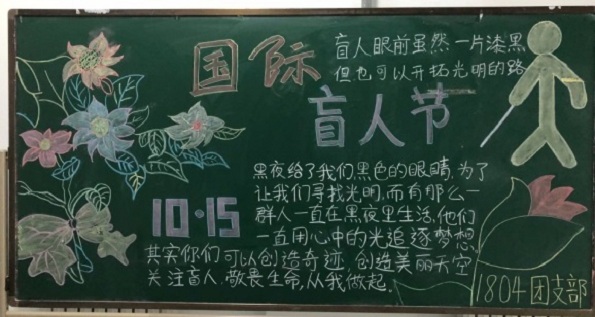 国际
盲人节
盲人眼前虽然一片漆黑
但也可以开拓光明的路
黑夜给了我们黑色的眼睛,为了
让我们寻找光明,而有那么一
群人一直在黑夜里生活,他们
一直用心中的光追逐梦想,
10·15
其实你们可以创造奇迹 创造美丽天空
关注盲人,敬畏生命,从我做起。
1804团支部